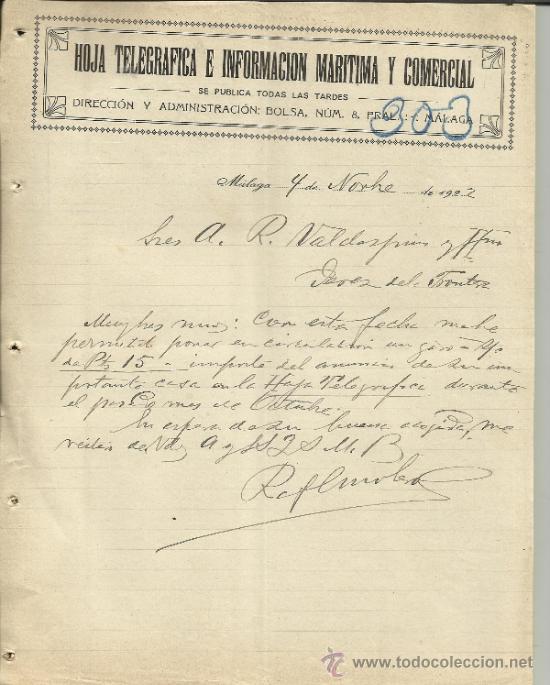 HOJA TELEGRAFICA E INFORMACION MARITIMA Y COMERCIAL
SE PUBLICA TODAS LAS TARDES
DIRECCIÓN Y ADMINISTRACIÓN: BOLSA, NÚM. 8, PRAL. MÁLAGA
303
Málaga 4 de Novbe de 1922
Sres A. R. Valdespino y Hno
Jerez de la Frontra
Muy Sres mios: Con esta fecha me he
permitido poner en circulación un giro a/c
de Pts 15 importe del anuncio de su im-
portante casa en la Hoja Telegrafica durante
el pasado mes de Octubre.
En espera de su buena acogida, me
reitero de Vds A y SS Q S M. B
todocoleccion
www.todocoleccion.net